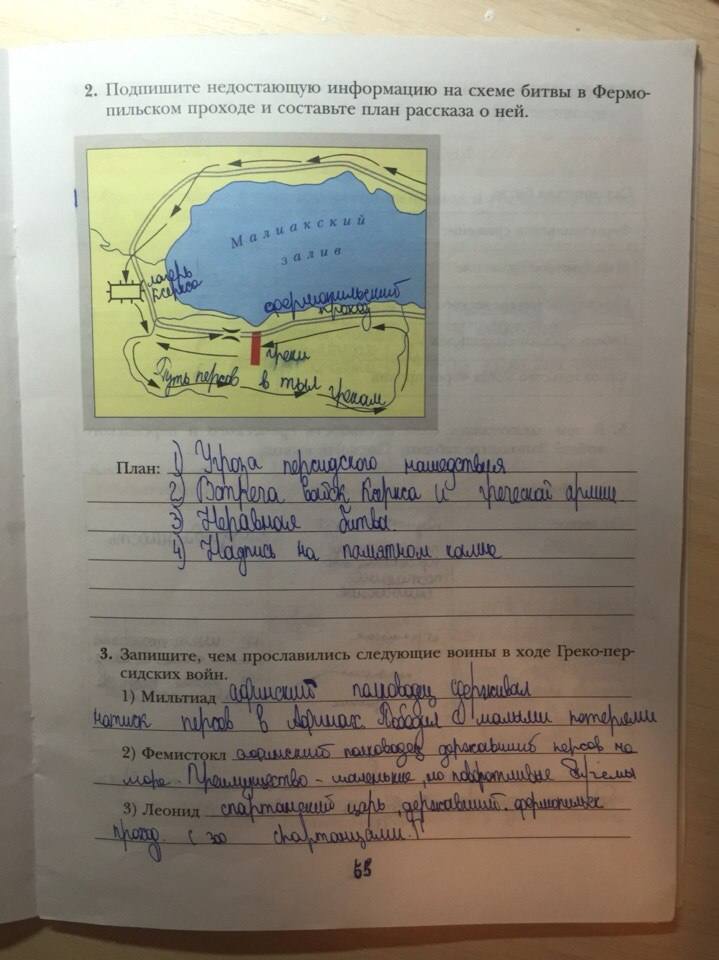 2. Подпишите недостающую информацию на схеме битвы в Фермо-
пильском проходе и составьте план рассказа о ней.
Малиакский
залив
лагерь
Ксеркса
фермопильский
проход
греки
Путь персов в тыл грекам
План: 1) Угроза персидского нашествия
2) Встреча войск Ксеркса и греческой армии
3) Неравная битва.
4) Надпись на памятном камне
3. Запишите, чем прославились следующие воины в ходе Греко-пер-
сидских войн.
1) Мильтиад афинский полководец сдерживал
натиск персов в Афинах. Победил с малыми потерями
2) Фемистокл афинский полководец державший персов на
море. Преимущество - маленькие, но поворотливые
3) Леонид спартанский царь, державший
проход с 300 спартанцами.